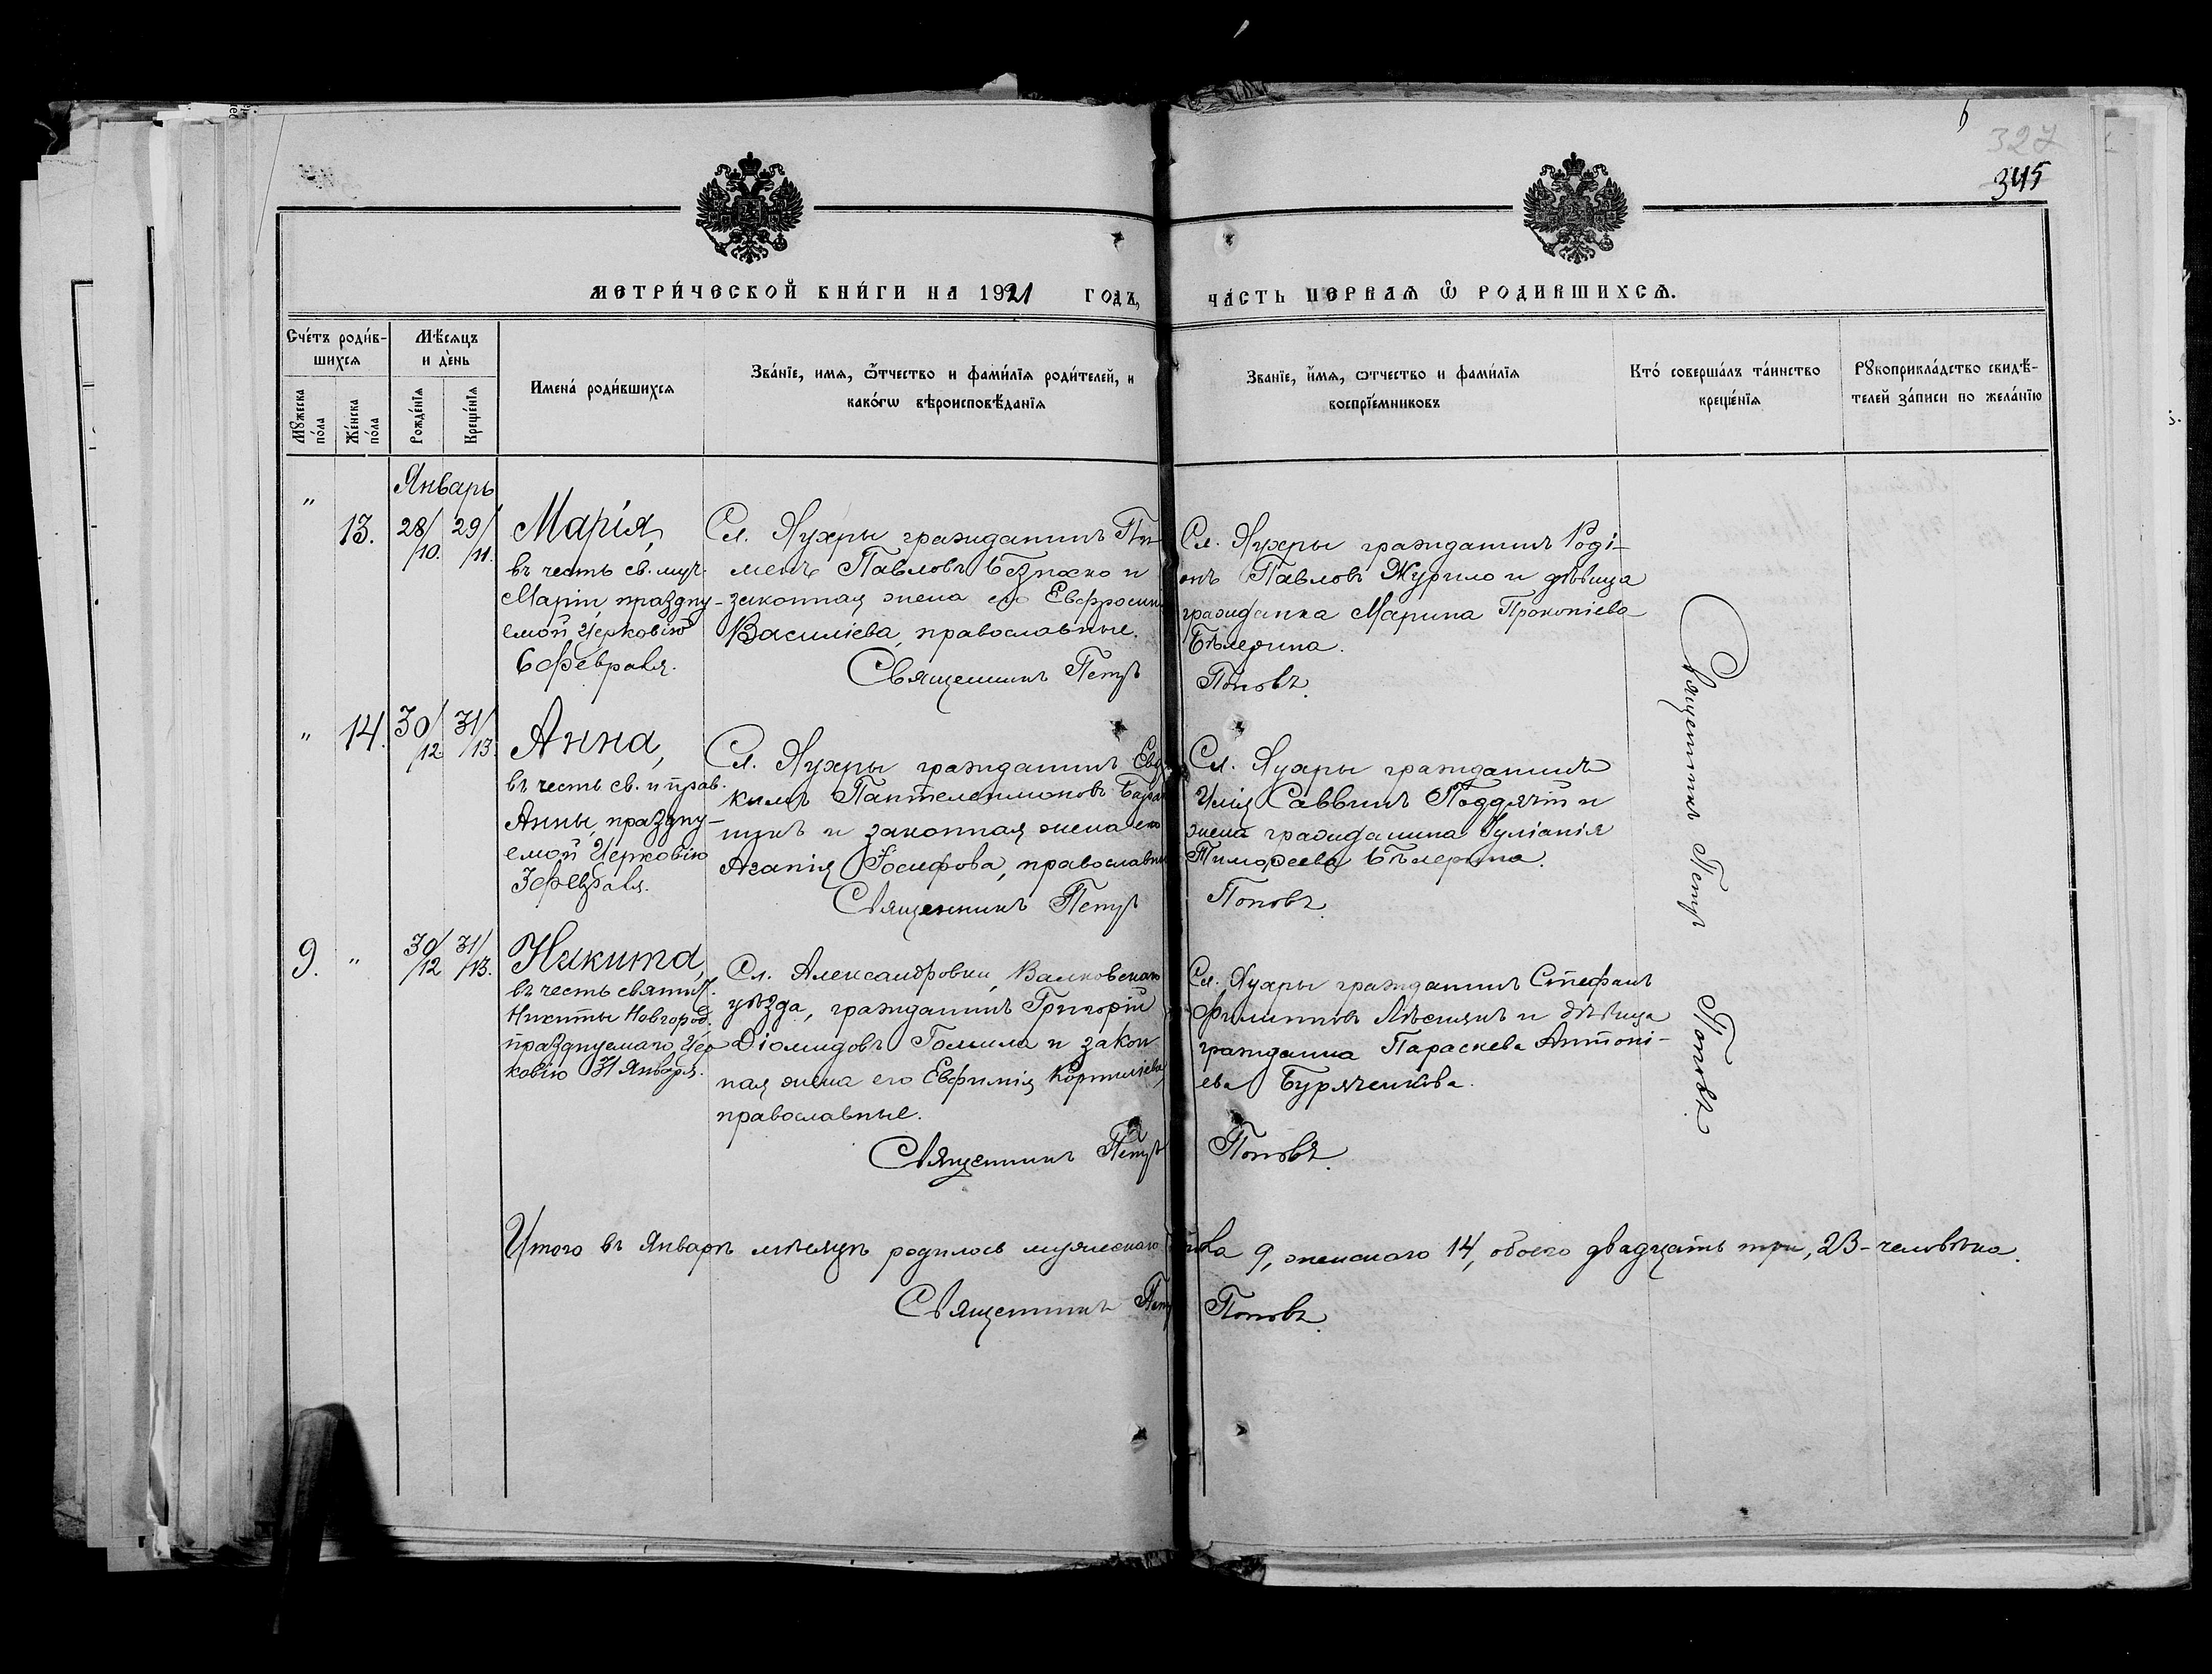 6
327
345
МЕТРИ́ЧЕСКОЙ КНИ́ГИ НА 1921 ГОДЪ,
ЧА́СТЬ ПЕРВАЯ Ѡ҆ РОДИВШИХСѦ.
Сче́тъ роди́в-
шихсѧ
Мѣ́сѧцъ
и де́нь
Имена́ роди́вшихсѧ
Зва́нїе, имѧ, ѻ҆́тчество и фами́лїѧ роди́телей, и
како́гѡ вѣроисповѣ́данїѧ
Званїе, и҆́мѧ, ѻтчество и фами́лїѧ
воспрїе́мниковъ
Кто́ соверша́лъ та́инство
креще́нїѧ
Рꙋкоприкла́дство свидѣ́-
телей за́писи по жела́нїю
Мꙋ́жеска
по́ла
Же́нска
по́ла
Рожде́нїѧ
Креще́нїѧ
Январь
" 13. 28/10. 29/11.
Марія,
въ честь св. муч.
Маріи, праздну-
емой Церковію
6 февраля.
Сл. Яухры гражданинъ Пи-
менъ Павловъ Безпалко и
законная жена его Евфросинія
Василіева, православные.
Священникъ Петръ
Сл. Яухры гражданинъ Роді-
онъ Павловъ Журило и дѣвица
гражданка Марина Прокопіева
Поповъ.
" 14. 30/12. 31/13.
Анна,
въ честь св. и прав.
Анны, праздну-
емой Церковію
3 февраля.
Сл. Яухры гражданинъ
Пантелеимоновъ
и законная жена его
Агапія Іосифова, православные
Священникъ Петръ
Сл. Яухры гражданинъ
Илія Саввинъ и
жена гражданина Іуліанія
Тимофеева
Поповъ.
9. " 30/12 31/13.
Никита,
въ честь святит.
Никиты Новгород.
празднуемаго Цер
ковію 31 Января.
Сл. Александровки, Валковскаго
уѣзда, гражданинъ Григорій
Діомидовъ Гомила и закон
ная жена его Евфимія Корниліева,
православные.
Священникъ Петръ
Сл. Яухры гражданинъ Стефанъ
Филипповъ и дѣвица
гражданка Параскева Антоні-
ева Буряченкова.
Поповъ.
Священникъ Петръ Поповъ.
Итого въ Январѣ мѣсяцѣ родилось мужескаго пола 9, женскаго 14, обоего двадцать три, 23 - человѣка.
Священникъ Петръ Поповъ.